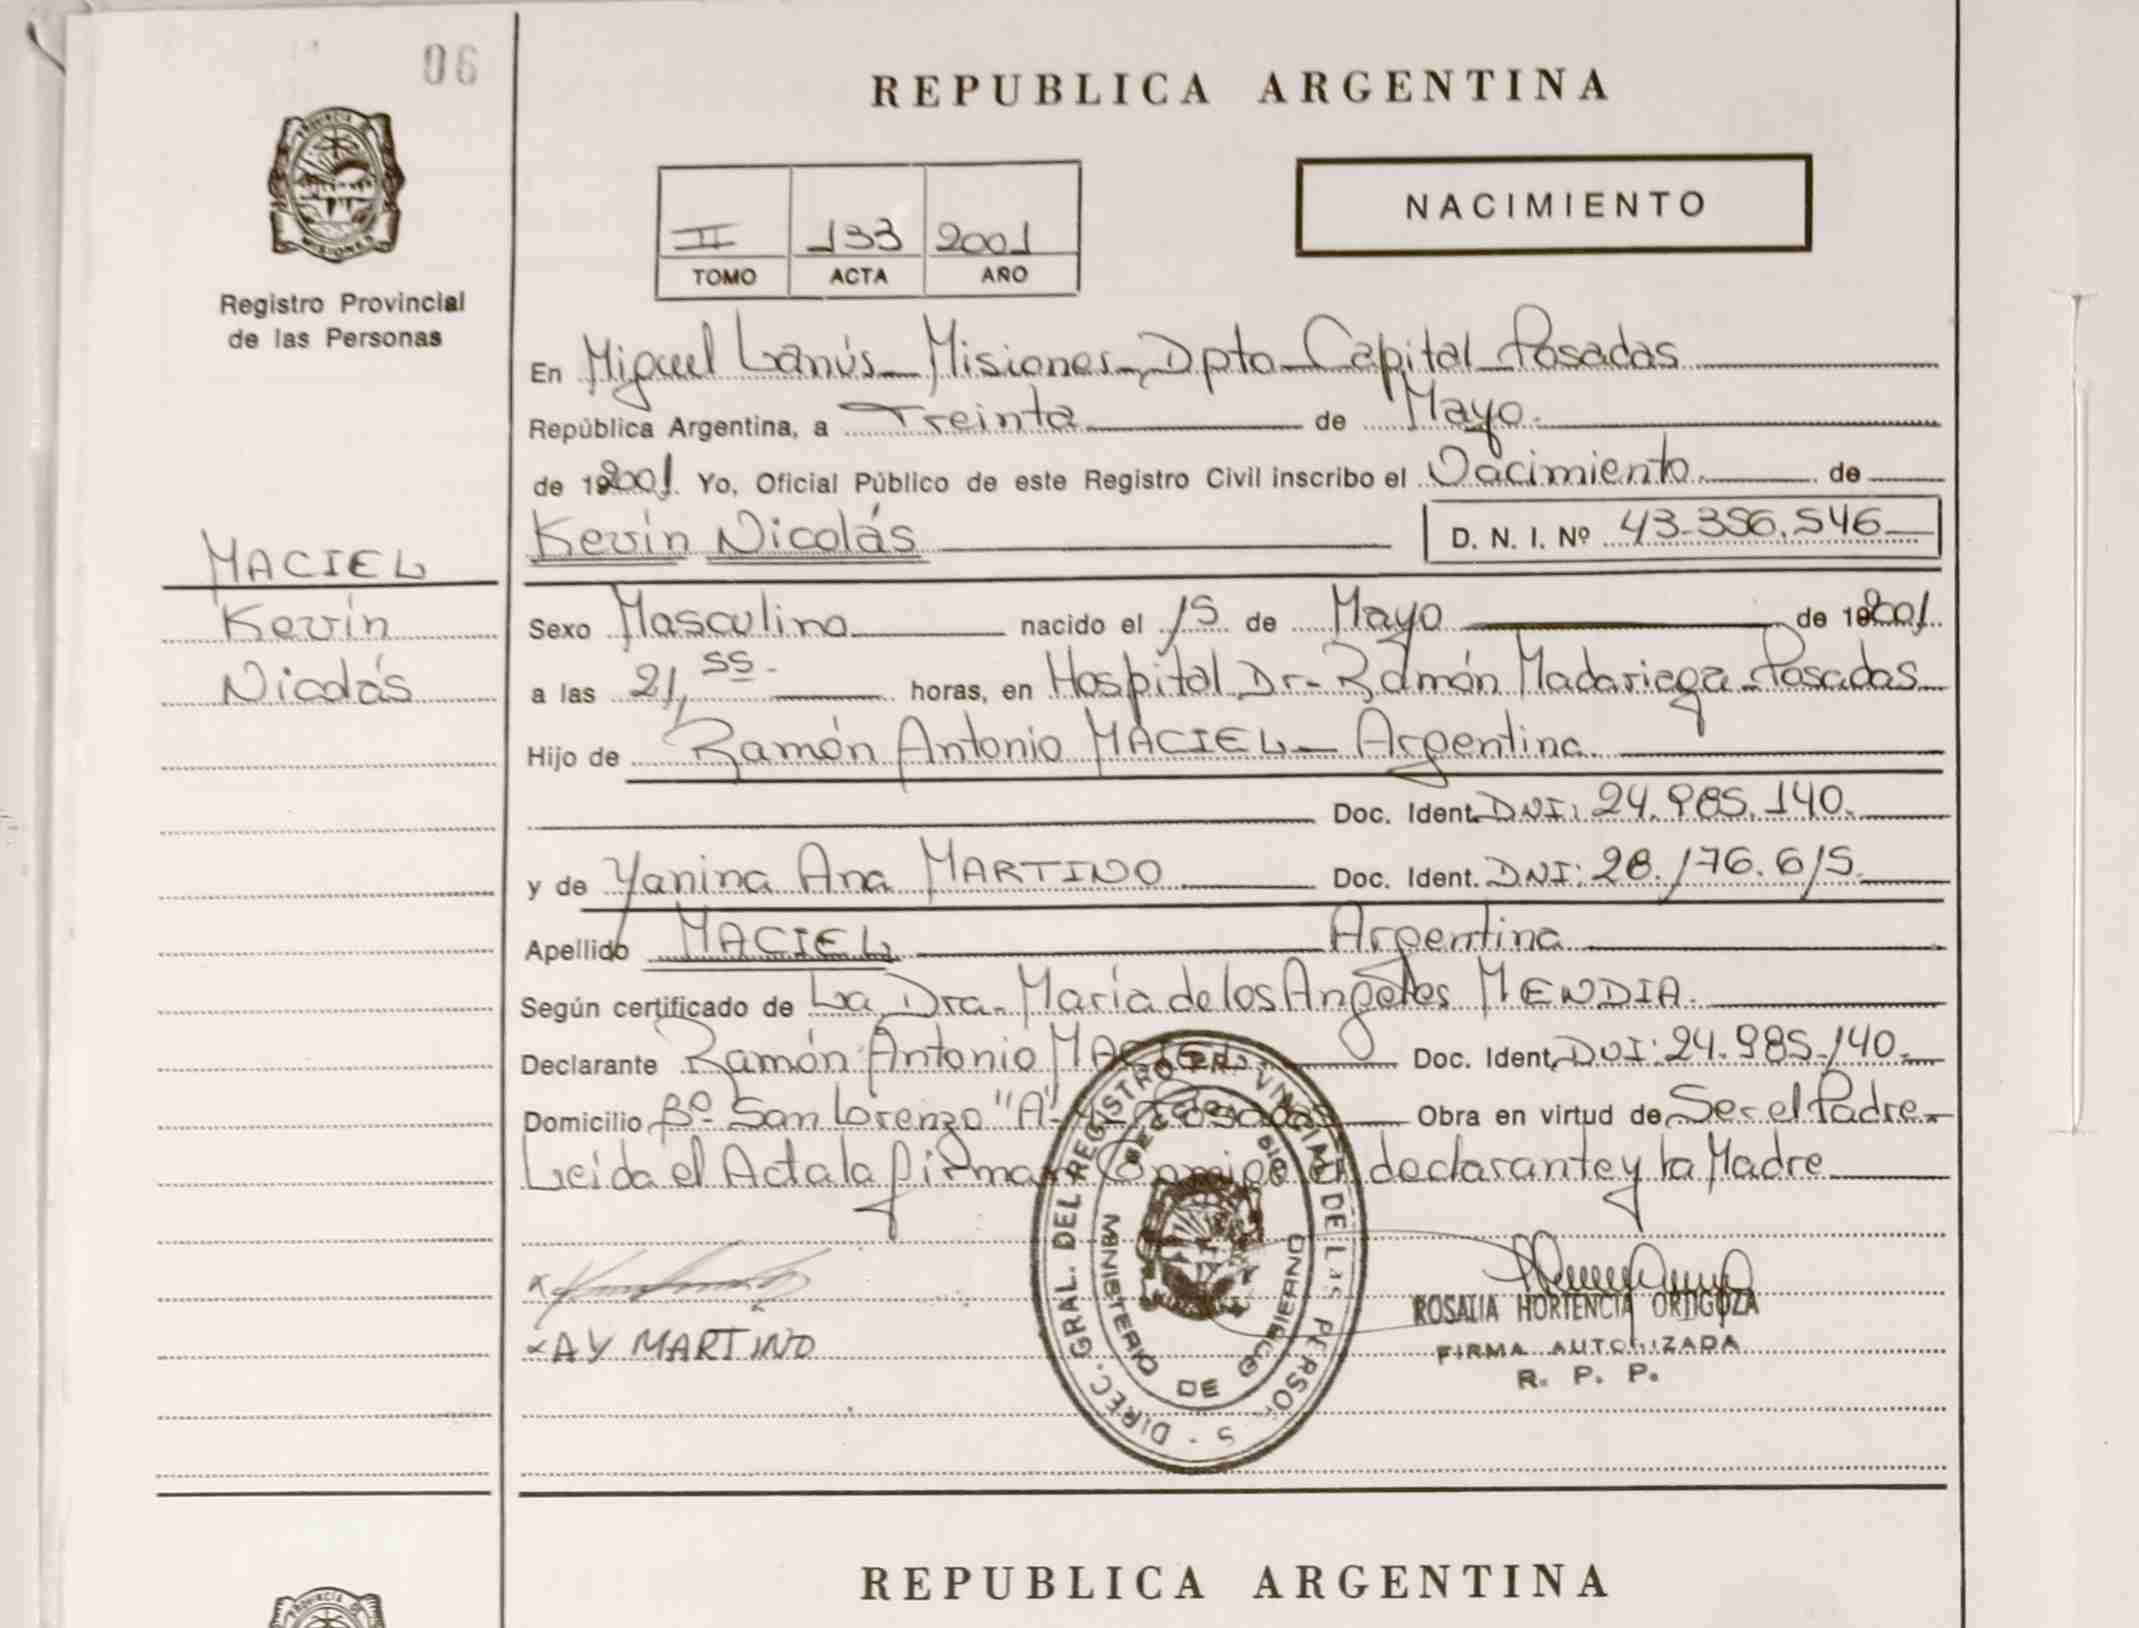 06
REPUBLICA ARGENTINA
PROVINCIA DE
MISIONES
Registro Provincial
de las Personas
II 133 2001
TOMO ACTA AÑO
NACIMIENTO
En Miguel Lanús - Misiones, Dpto Capital Posadas
República Argentina, a Treinta de Mayo
de 2001 Yo, Oficial Público de este Registro Civil inscribo el Nacimiento de
MACIEL
Kevin
Nicolás
Kevin Nicolás D. N. I. Nº 43.356.546
Sexo Masculino nacido el 15 de Mayo de 2001
a las 21,55 horas, en Hospital Dr. Ramón Madariaga - Posadas
Hijo de Ramón Antonio MACIEL - Argentino
Doc. Ident. DNI: 24.985.140
y de Yanina Ana MARTINO Doc. Ident. DNI: 28.176.615
Apellido MACIEL Argentina
Según certificado de La Dra. María de los Angeles MENDIA
Declarante Ramón Antonio MACIEL Doc. Ident. DNI: 24.985.140
Domicilio Bº San Lorenzo "A" - Posadas Obra en virtud de Ser el Padre
Leida el Acta la firman Conmigo el declarante y la Madre
x AY MARTINO
DIREC. GRAL. DEL REGISTRO PROVINCIAL DE LAS PERSONAS
MINISTERIO DE GOBIERNO
ROSALIA HORTENCIA ORTIGOZA
FIRMA AUTORIZADA
R. P. P.
REPUBLICA ARGENTINA
PROVINCIA DE